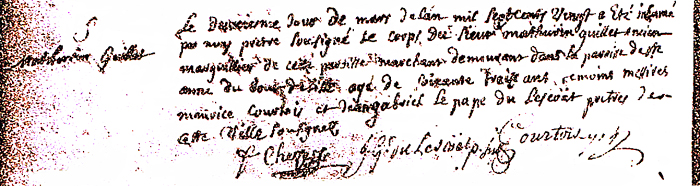 S
mathurin Guillet
Le deuxieme Jour de mars de lan mil septcents vingt a Eté inhumé
par nous prêtre soussigné le corps du sieur mathurin guillet ancien
marguillier de cette marchant demeurant dans la paroise de ste
anne du bout de agé de soixante traise ans, temoins messires
maurice Courtois et Jean gabriel le pape du lescöet prêtres de
cette Ville soussignes
G: du Lescöet p. Courtois